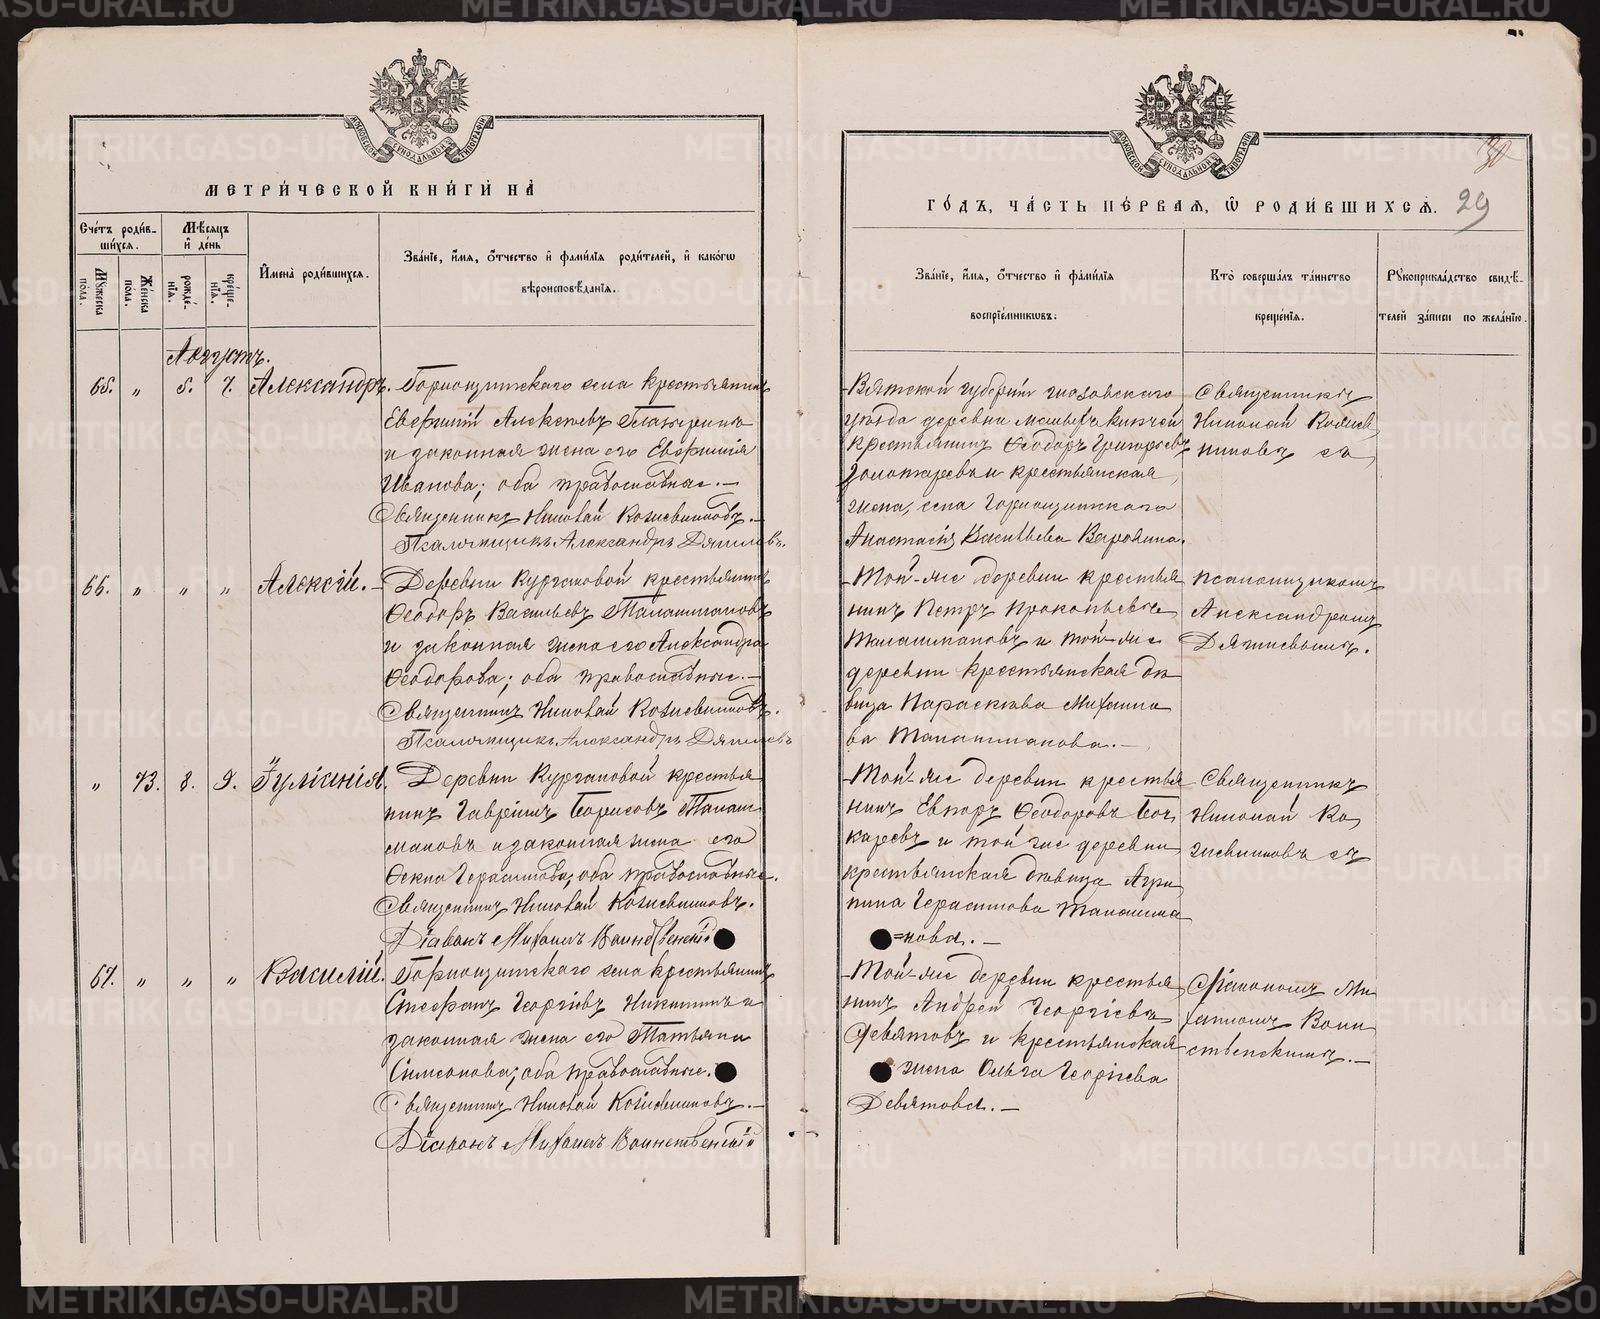 МЕТРИ́ЧЕСКОЙ КНИ́ГИ НА̀
Сче́тъ роди́в-
ши́хся.
Мѣ́сяцъ
и҆ де́нь
И҆мена̀ роди́вшихся.
Зва́нїе, и҆́мя, ѻ҆́тчество и҆ фами́лїя роди́телей, и҆ како́гѡ
вѣроисповѣ́данїя.
Мꙋ́жеска по́ла.
Же́нска по́ла.
рожде́-нїя.
креще́-нїя.
Августъ.
65. " 5. 7. Александръ.
Горнощитскаго села крестьянинъ
Алексѣевъ
и законная жена его Евфимія
Иванова; оба православные.—
Священникъ Николай Кожевниковъ.—
Псаломщикъ Александръ Дягилевъ.
66. " " " Алексій.—
Деревни Кургановой крестьянинъ
Ѳеодоръ Васильевъ Талашмановъ
и законная жена его Александра
Ѳеодорова; оба православные.—
Священникъ Николай Кожевниковъ.
Псаломщикъ Александръ Дягилевъ
" 73. 8. 9. Іуліанія.
Деревни Кургановой крестья
нинъ Гавріилъ Борисовъ Талаш
мановъ и законная жена его
Герасимова; оба православные.
Священникъ Николай Кожевниковъ.
Діаконъ Михаилъ Воинственскій
67. " " " Василій.
Горнощитскаго села крестьянинъ
Стефанъ Георгіевъ Никитинъ и
законная жена его Татьяна
Симеонова; оба православные.
Священникъ Николай Кожевниковъ.—
Діаконъ Михаилъ Воинственскій
ГО́ДЪ, ЧА́СТЬ ПЕ́РВАЯ, Ѡ҆ РОДИ́ВШИХСЯ.
29
Зва́нїе, и҆́мя, ѻ҆́тчество и҆ фами́лїя
воспрїе́мникѡвъ.
Кто̀ соверша́лъ та́инство
креще́нїя.
Рꙋкоприкла́дство свидѣ́-
телей за́писи по жела́нїю.
Вятской губерніи Глазовскаго
уѣзда деревни
крестьянинъ Ѳеодоръ Григорьевъ
Золотаревъ и крестьянская
жена, села Горнощитскаго
Анастасія Васильева Воронина.
Священникъ
Николай Кожев
никовъ съ
Той-же деревни крестья
нинъ Петръ Прокопьевъ
Талашмановъ и той-же
деревни крестьянская дѣ
вица Параскева Михаило
ва Талашманова.—
псаломщикомъ
Александромъ
Дягилевымъ.
Той-же деревни крестья
нинъ Ѳеодоровъ Боч
каревъ и той же деревни
крестьянская дѣвица Агри
пина Герасимова Талашма
=нова.—
Священникъ
Николай Ко
жевниковъ съ
Той-же деревни крестья
нинъ Андрей Георгіевъ
Девятовъ и крестьянская
жена Ольга Георгіева
Девятова.—
Діакономъ Ми
хаиломъ Воин
ственскимъ.—